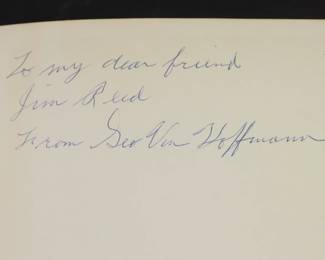 To my dear friend
Jim Reed
From Geo Von Hoffmann